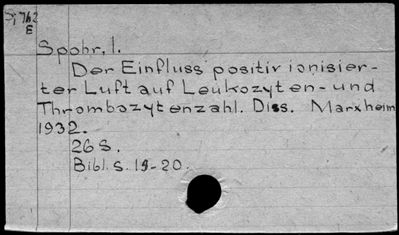 Dj 762
E
Spohr, I.
Der Einfluss positiv ionisier-
ter Luft auf Leukozyten- und
Thrombozytenzahl. Diss. Marxheim
1932.
26 S.
Bibl. S. 19-20.